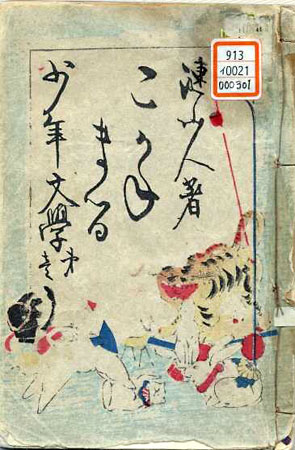 913
10021
000301
漣山人著
こがね
まる
少年文學
第壱